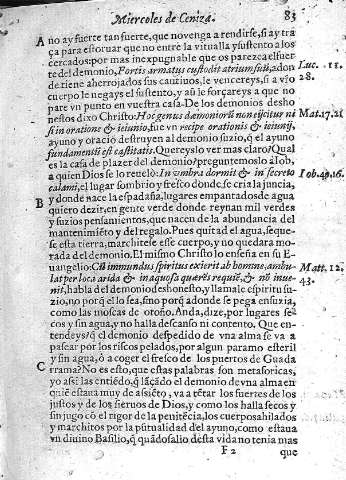 Miercoles de Ceniza. 83
A no ay fuerte tan fuerte, que no venga a rendirse, si ay tra
ça para estoruar que no entre la vitualla y sustento a los
cercados: por mas inexpugnable que os parezca el fuer
te del demonio, Fortis armatus custodit atrium suũ, adon Luc. 11.
de tiene aherrojados sus cautiuos, le vencereys, si a vr̃o 28.
cuerpo le negays el sustento, y aũ le forçareys a que no
pare vn punto en vuestra casa. De los demonios desho
nestos dixo Christo: Hoc genus dæmoniorũ non eijcitur ni Mat. 17. 21
si in oratione & ieiunio, fue vn recipe orationis & ieiunij,
ayuno y oració destruyen al demonio suzio, q̃ el ayuno
fundamentũ est castitatis. Quereyslo ver mas claro? Qual
es la casa de plazer del demonio? preguntemoslo à Iob,
a quien Dios se lo reuelò: In vmbra dormit & in secreto Iob. 40. 16.
calami, el lugar sombrio y fresco donde se cria la juncia,
B y donde nace la espadaña, lugares empantados de agua
quiero dezir, en gente verde donde reynan mil verdes
y suzios pensamientos, que nacen de la abundancia del
mantenimiẽto y del regalo. Pues quitad el agua, seque-
se esta tierra, marchitese esse cuerpo, y no quedara mo-
rada del demonio. El mismo Christo lo enseña en su E-
uangelio: Cũ immundus spiritus exierit ab homine, ambu- Matt. 12.
lat per loca arida & inaquosa quærẽs requiẽ, & nõ inue- 43.
nit, habla del demonio deshonesto, y llamale espiritu su-
zio, no porq̃ el lo sea, sino porq̃ adonde se pega ensuzia,
como las moscas de otoño. Anda, dize, por lugares se-
cos y sin agua, y no halla descanso ni contento. Que en-
tendeys? q̃ el demonio despedido de vna alma se va a
passear por los riscos pelados, por algun paramo esteril
y sin agua, ò a coger el fresco de los puertos de Guada
C rrama? No es esto, que estas palabras son metaforicas,
yo assi las entiẽdo, q̃ lãçado el demonio de vna alma en
quiẽ estaua muy de assiẽto, va a tẽtar los fuerzes de los
justos y de los sieruos de Dios, y como los halla secos y
sin jugo cõ el rigor de la penitẽcia, los cuerpos ahilados
y marchitos por la putualidad del ayuno, como estaua
vn diuino Basilio, q̃ quãdo salio desta vida no tenia mas
F 2 que